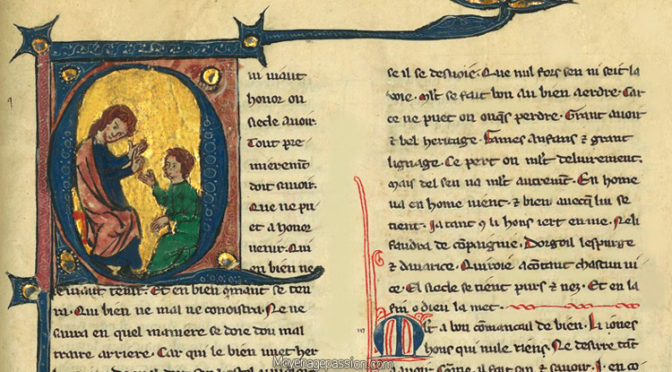 Qui uiaut
honor ou
siecle auoir.
Tout pre
mierement
doit sauoir.
Que ne pu
et a honor
uenir. Qui
en bien ne
se uiaut tenir. Et en bien qmant se ten
ra. Qui bien ne mal ne conoistra. Ne ne
saura en quel maniere se doie dou mal
traire arriere. Car qui le bien uuet her
se il se desuoie. Que nul fors sen ni seit la
uoie. Mlt se fait bon au bien aerdre. Car
ce ne puet on onqs perdre. Grant auoir
& bel heritage. Fames anfans & grant
lignage. Ce pert on mlt deliurement.
mais del sen ua mlt autrement. En home
ua en home uient. & bien auecqs lui se
tient. Ja tant q li hons iert en uie. Neli
faudra de cōpaignie. Dorgoil lespurge
& dauarice. Qui uoie acōtant chascun ui
ce. El siecle se tient purs & nez. Et en la
fin o dieu la met.
Mlt a bon cōmancail de bien. Li iones
hons qui nule riens. Ne desire tāt
Moyenagepassion.com